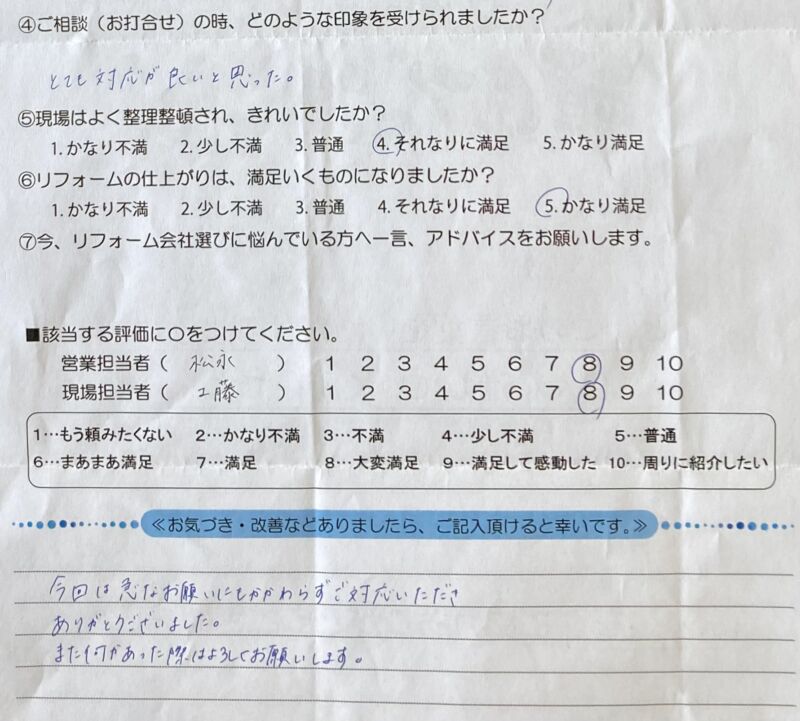 ④ご相談（お打合せ）の時、どのような印象を受けられましたか？
とても対応が良いと思った。
⑤現場はよく整理整頓され、きれいでしたか？
1. かなり不満 2. 少し不満 3. 普通 4. それなりに満足 5. かなり満足
⑥リフォームの仕上がりは、満足いくものになりましたか？
1. かなり不満 2. 少し不満 3. 普通 4. それなりに満足 5. かなり満足
⑦今、リフォーム会社選びに悩んでいる方へ一言、アドバイスをお願いします。
■該当する評価に〇をつけてください。
営業担当者（ 松永 ） 1 2 3 4 5 6 7 8 9 10
現場担当者（ 工藤 ） 1 2 3 4 5 6 7 8 9 10
1…もう頼みたくない 2…かなり不満 3…不満 4…少し不満 5…普通
6…まあまあ満足 7…満足 8…大変満足 9…満足して感動した 10…周りに紹介したい
≪お気づき・改善などありましたら、ご記入頂けると幸いです。≫
今回は急なお願いにもかかわらずご対応いただき
ありがとうございました。
また何かあった際はよろしくお願いします。